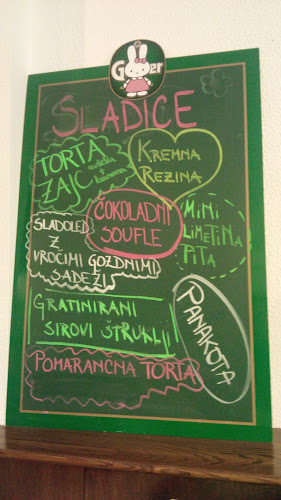 SLADICE
TORTA
ZAJC
KREMNA
REZINA
ČOKOLADNI
SOUFLE
MINI
LIMETINA
PITA
SLADOLED
Z
VROČIMI GOZDNIMI
SADEŽI
GRATINIRANI
SIROVI ŠTRUKLJI
PANAKOTA
POMARANČNA TORTA